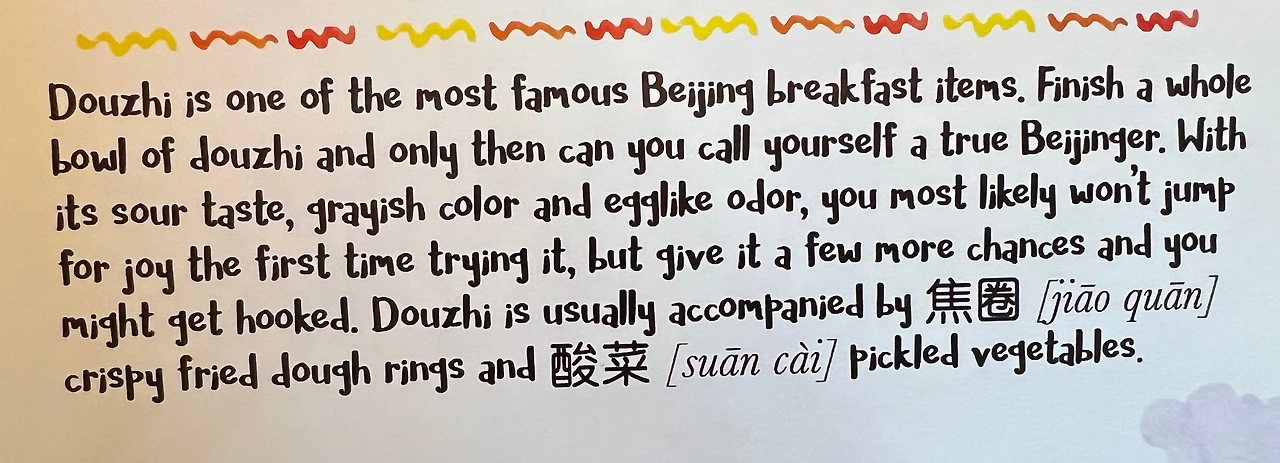 Douzhi is one of the most famous Beijing breakfast items. Finish a whole
bowl of douzhi and only then can you call yourself a true Beijinger. With
its sour taste, grayish color and egglike odor, you most likely won't jump
for joy the first time trying it, but give it a few more chances and you
might get hooked. Douzhi is usually accompanied by 焦圈 [jiāo quān]
crispy fried dough rings and 酸菜 [suān cài] pickled vegetables.